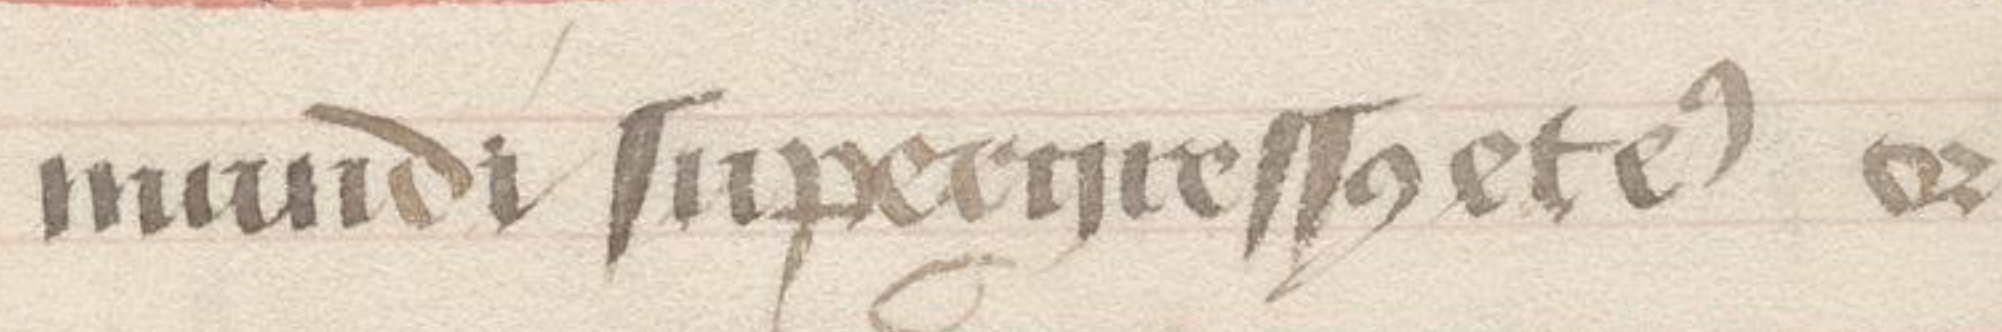 mundi supergressꝯ ete᾿ or